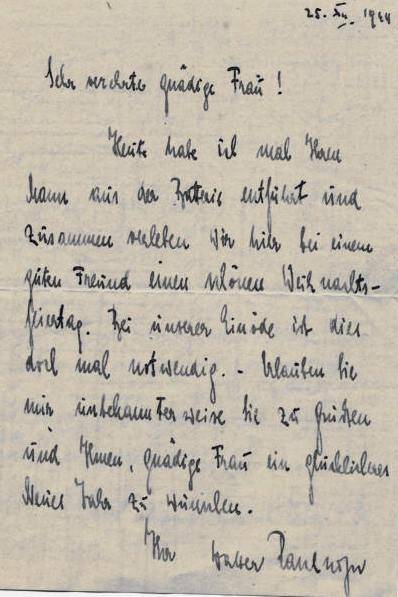 25. XII. 1944
Sehr verehrte gnädige Frau!
Heute habe ich mal Ihren
Mann aus der Batterie entführt und
zusammen verleben wir hier bei einem
guten Freund einen schönen Weihnachts-
feiertag. Bei unserer Einöde ist dies
doch mal notwendig. - Erlauben Sie
mir unbekannterweise Sie zu Grüßen
und Ihnen, gnädige Frau ein glückliches
Neues Jahr zu wünschen.
Ihr Walter